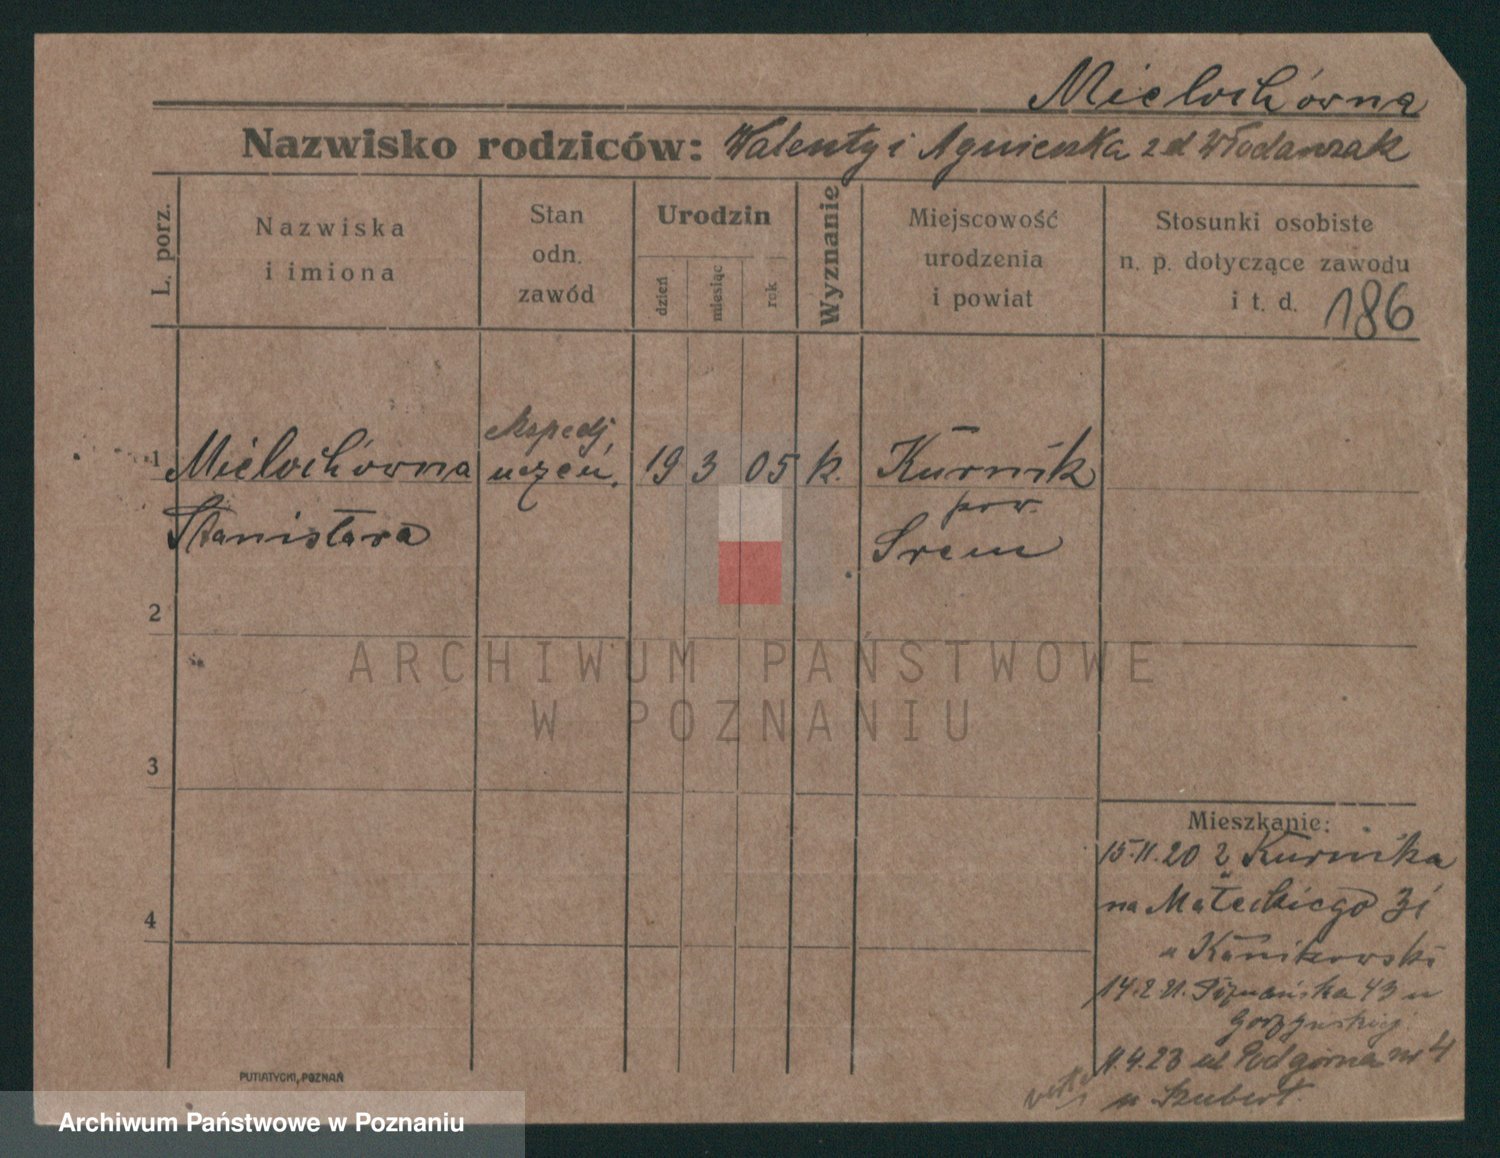 Mielochówna
Nazwisko rodziców: Walenty i Agnieszka z d Włodarczak
L. porz.
Nazwiska
i imiona
Stan
odn.
zawód
Urodzin
dzień
miesiąc
rok
Wyznanie
Miejscowość
urodzenia
i powiat
Stosunki osobiste
n. p. dotyczące zawodu
i t. d. 186
ekspedj.
1 Mielochówna uczeń. 19 3 05 k. Kurnik
pow.
Stanisława Srem
2
ARCHIWUM PAŃSTWOWE
W POZNANIU
3
Mieszkanie:
15.11.20 z Kurnika
na Małeckiego 31
4
u Kanikowski
14.2.21. Poznańska 43 u
11.4.23 ul Podgórna nr 4
u Szubert.
PUTIATYCKI, POZNAŃ
Archiwum Państwowe w Poznaniu